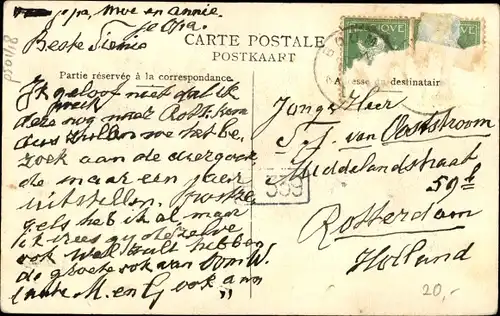 opa, moe en annie.
Je Opa.
Beste Tienie
CARTE POSTALE
POSTKAART
Partie réservée à la correspondance.
Adresse du destinataire
Ik geloof niet dat ik
deze week
nog naar Rott. kom
dus zullen we het be
zoek aan de
maar een jaar
uitstellen.
gels heb ik al maar
ik vrees gij dezelve
ook wel zult hebben
de groete ook van Oom W.
tante M. en G ook aan
Jonge Heer
S. J. van Oostroom
Middelandstraat
59b
Rotterdam
Holland
359
20,-